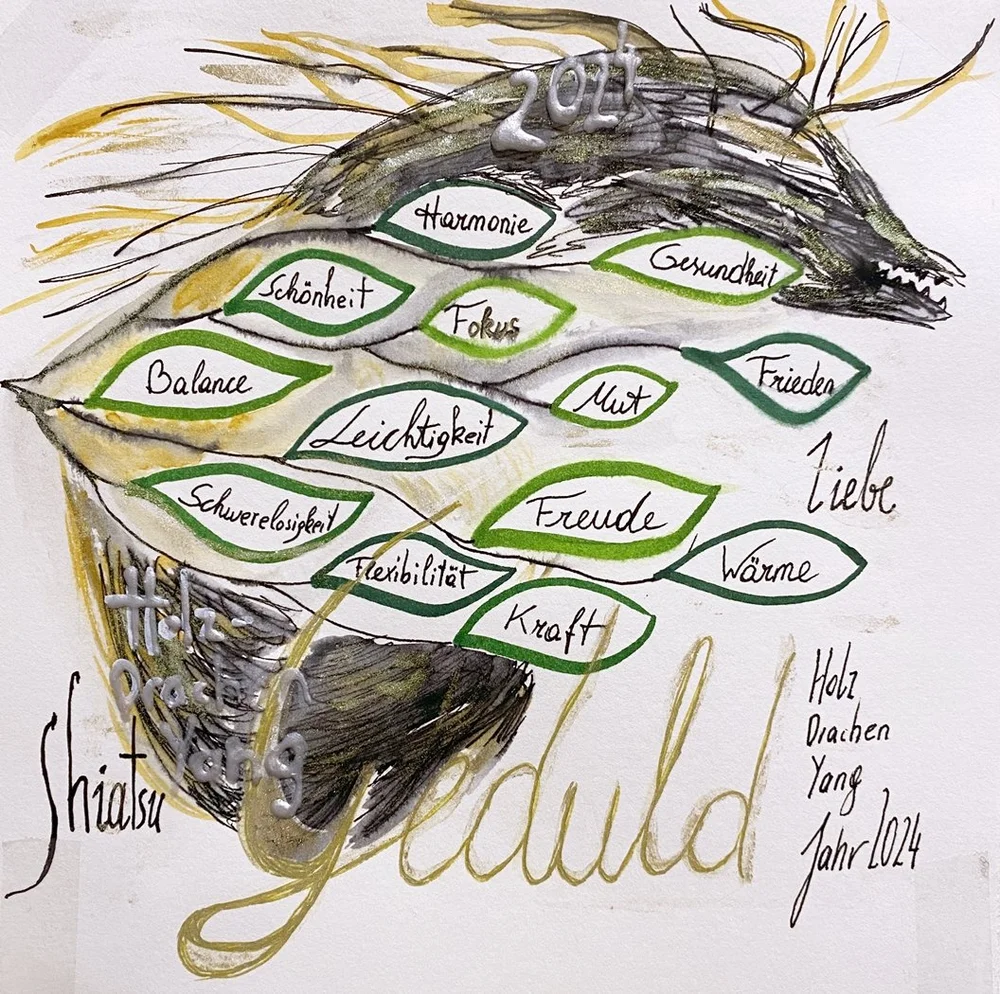 2024
Harmonie
Gesundheit
Schönheit
Fokus
Balance
Mut
Frieden
Leichtigkeit
Liebe
Schwerelosigkeit
Freude
Flexibilität
Wärme
Kraft
Holz-
Drachen
Yang
Shiatsu
Geduld
Holz
Drachen
Yang
Jahr 2024